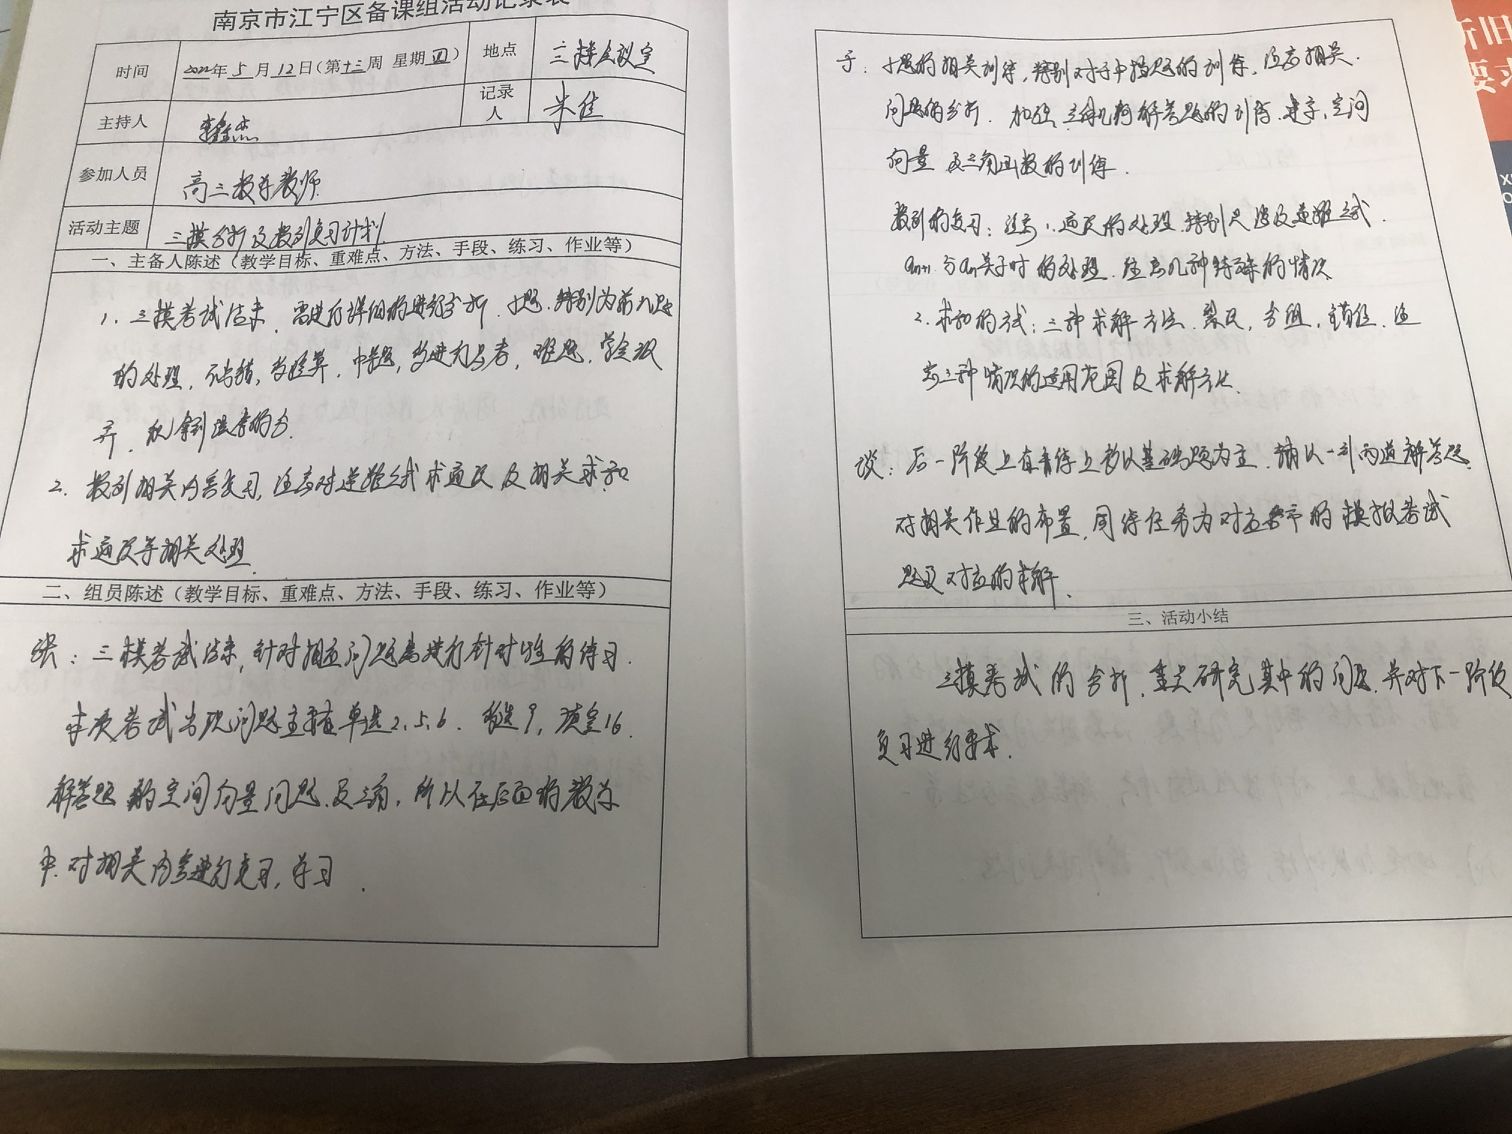 南京市江宁区备课组活动记录表
时间
2022年5月12日(第十三周 星期四)
地点
三楼会议室
主持人
记录人
朱佳
参加人员
高三数学教师
活动主题
三模分析及数列复习计划
一、主备人陈述（教学目标、重难点、方法、手段、练习、作业等）
1. 三模考试结束，需进行详细的进行分析，小题，特别为前几题
的处理，不与错，中题，难题，学会放
弃，
2. 数列相关内容复习，注意对递推式求通项及相关求和
求通项等相关处理.
二、组员陈述（教学目标、重难点、方法、手段、练习、作业等）
张：三模考试结束，针对相应问题需进行针对性的练习.
本次考试出现问题主要单选2.5.6. 多选9，填空16.
解答题的空间向量问题及三角，所以在后面的教学
中，对相关内容进行复习，学习.
于：小题的相关训练，特别对于中档题的训练，注意相关
问题的分析. 加强立体几何解答题的训练，建系，空间
向量及三角函数的训练.
数列的复习：注意1. 通项的处理，特别是涉及递推式.
an+1与an关于时的处理. 注意几种特殊的情况
2. 求和的方式：三种求解方法，裂项，分组，错位，注
意三种情况的适用范围及求解方法.
谈：后一阶段上有着练上都以基础题为主，辅以一到两道解答题.
对相关作业的布置，同练任务为对应各市的模拟考试
题及对应的求解.
三、活动小结
三模考试的分析，重点研究其中的问题，并对下一阶段
复习进行要求.